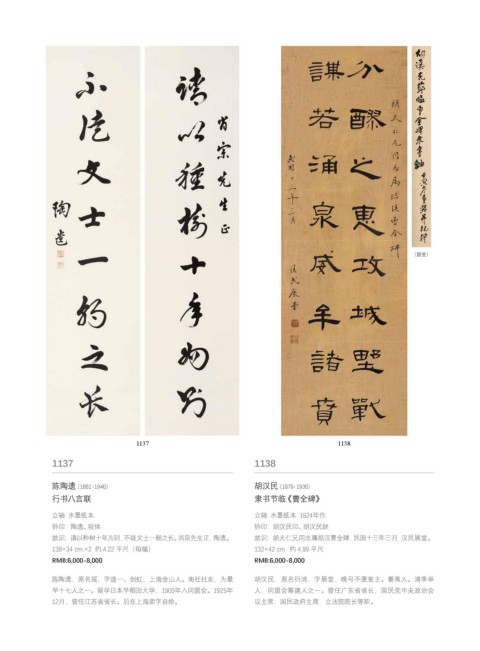 肖宗先生正
請以種樹十年为别
不徒文士一之长
陶遗
胡漢民節臨曹全碑
分醪之惠攻城野戰
謀若涌泉威牟諸賁
（题签）
1137
1138
1137
陈陶遗（1881-1946）
行书八言联
立轴 水墨纸本
钤印：陶遗、
款识：请以种树十年为别，不徒文士一之长。肖宗先生正，陶遗。
138×34 cm ×2 约 4.22 平尺（每幅）
RMB:6,000-8,000
陈陶遗，原名瑶，字道一，剑虹，上海金山人。南社社友，为最
早十七人之一。留学日本早稻田大学，1905年入同盟会。1925年
12月，曾任江苏省省长。后在上海卖字自给。
1138
胡汉民（1879-1936）
隶书节临《曹全碑》
立轴 水墨纸本 1924年作
钤印：胡汉民印、胡汉民鉨
款识：胡天仁兄同志属临汉曹全碑，民国十三年三月，汉民展堂。
132×42 cm 约 4.99 平尺
RMB:6,000-8,000
胡汉民，原名衍鸿，字展堂，晚号不匮室主。番禺人。清季举
人，同盟会筹建人之一。曾任广东省省长，国民党中央政治会
议主席，国民政府主席，立法院院长等职。